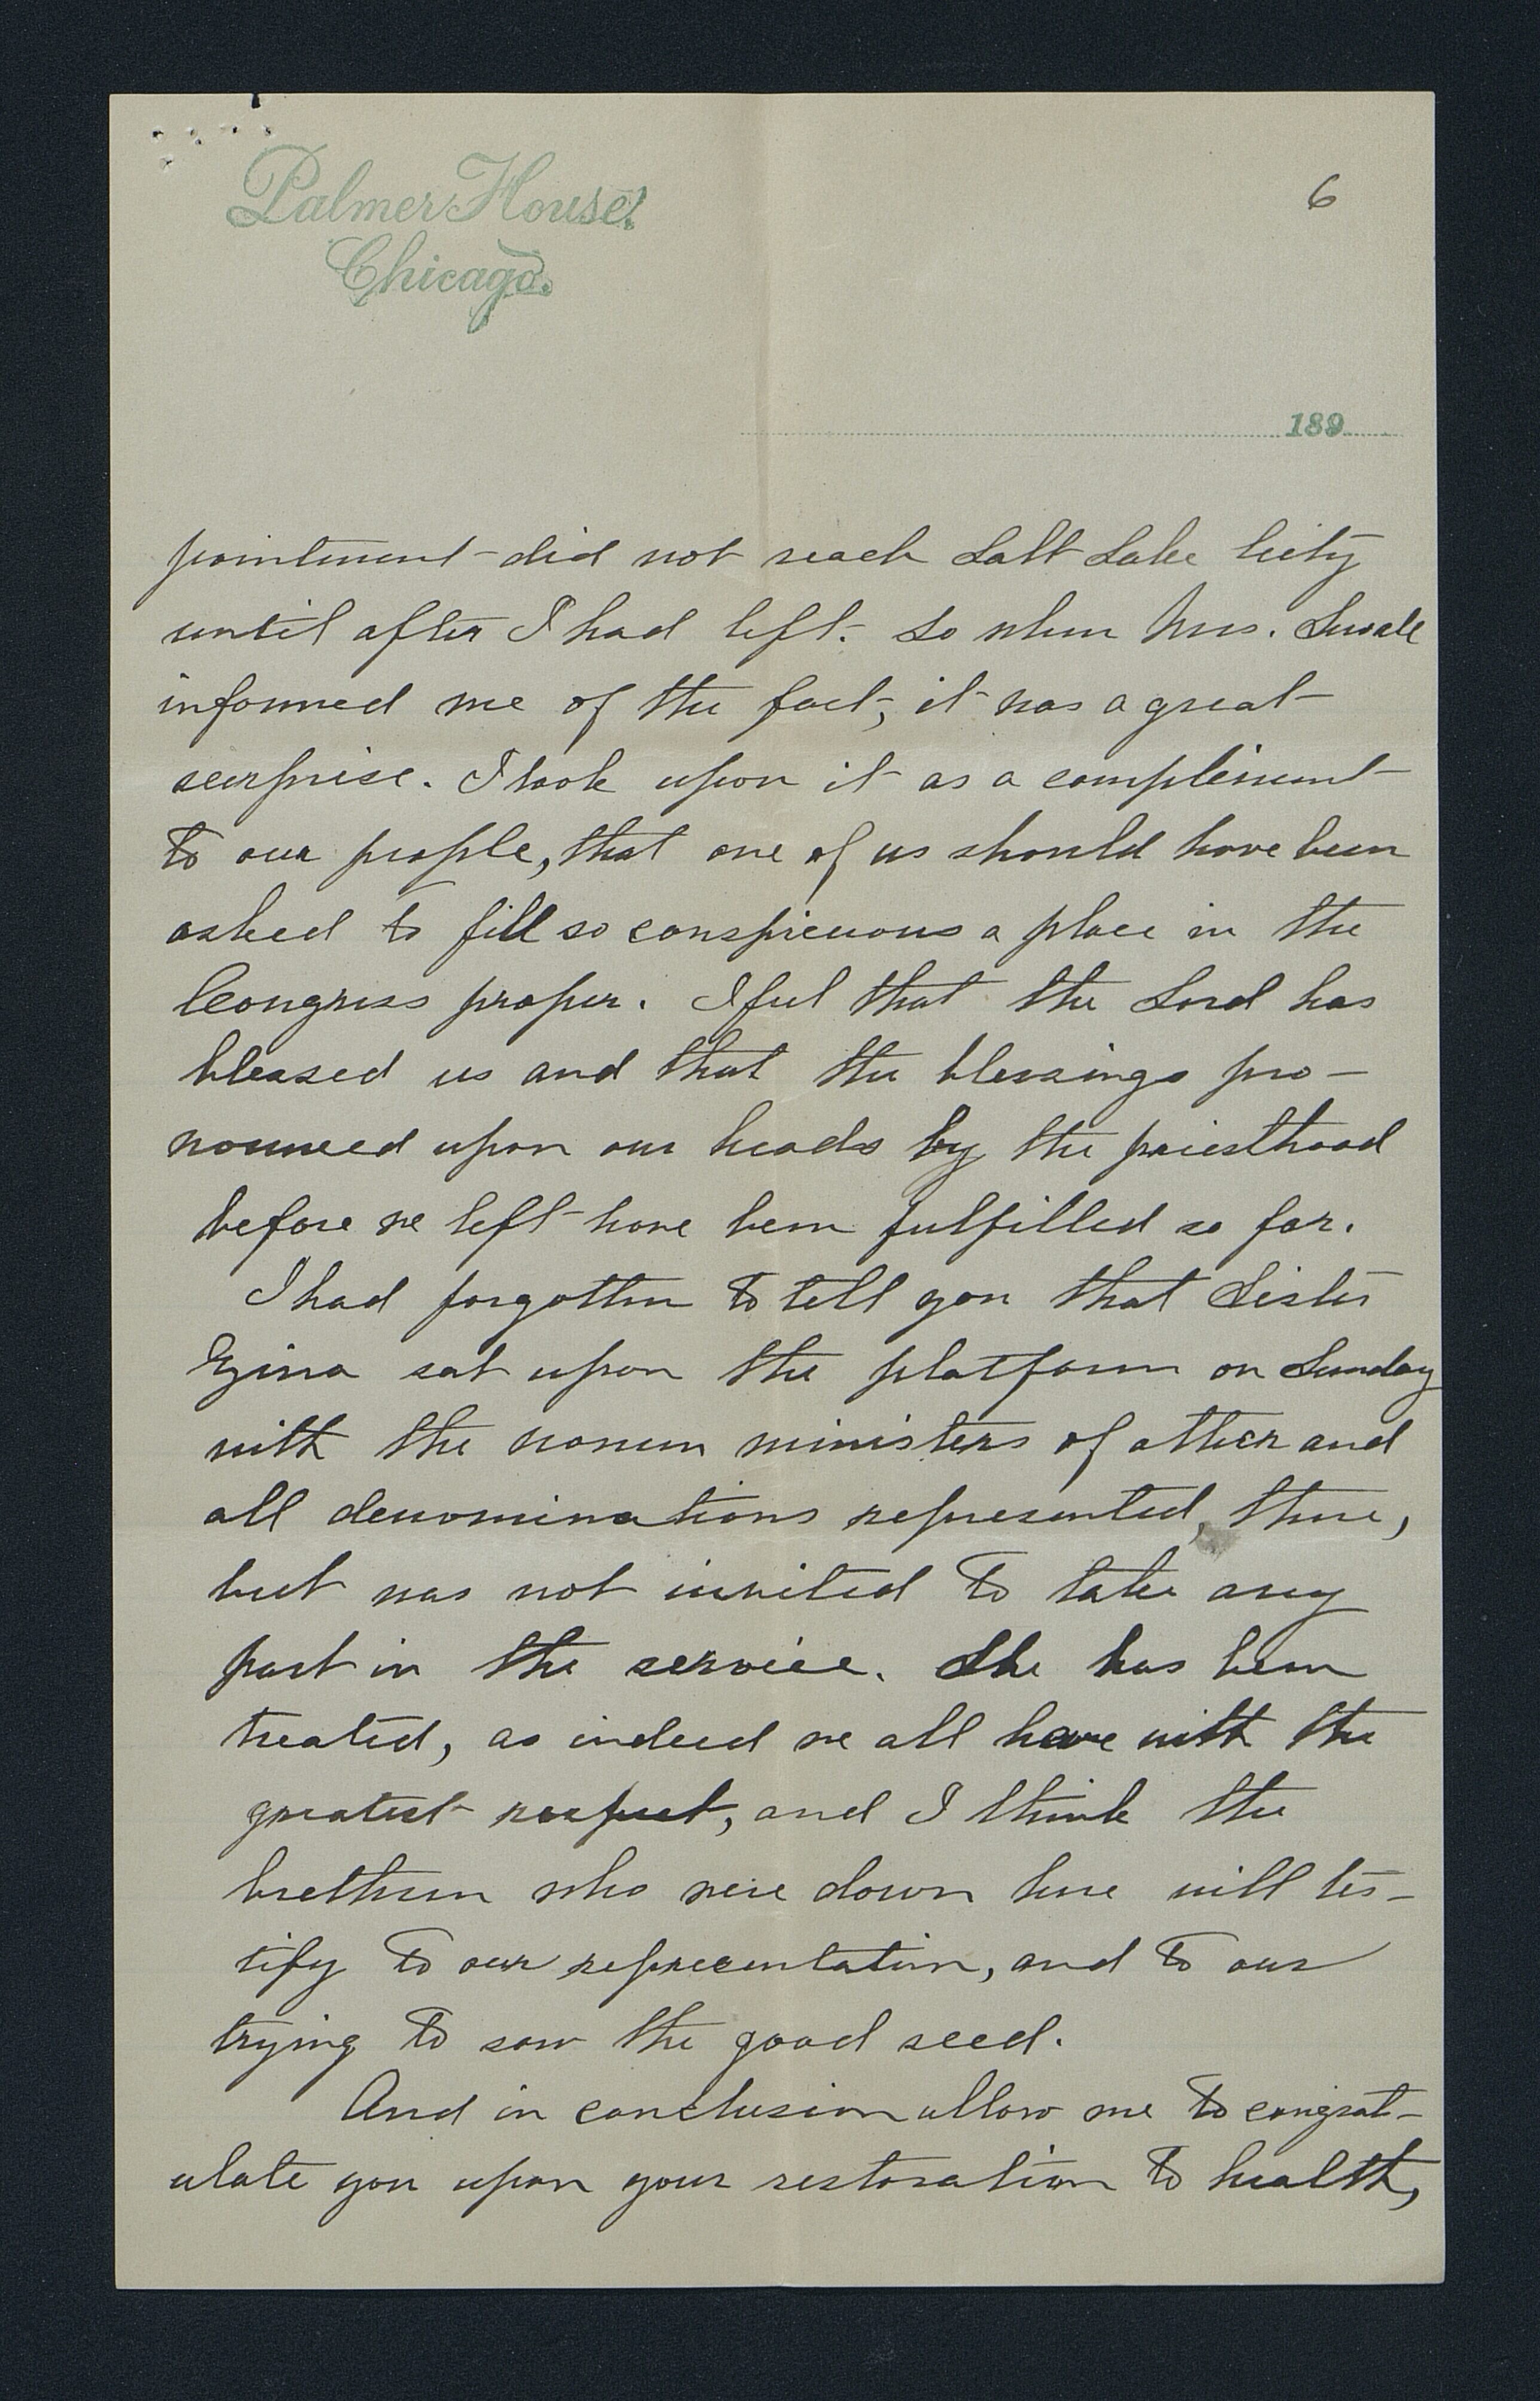 Palmer House,
Chicago.
6
189
pointment did not reach Salt Lake City
until after I had left. So when Mrs. Sewall
informed me of the fact, it was a great
surprise. I look upon it as a compliment
to our people, that one of us should have been
asked to fill so conspicuous a place in the
Congress proper. I feel that the Lord has
blessed us and that the blessings pro-
nounced upon our heads by the priesthood
before we left have been fulfilled so far.
I had forgotten to tell you that Sister
Zina sat upon the platform on Sunday
with the women ministers of other and
all denominations represented, there,
but was not invited to take any
part in the service. She has been
treated, as indeed we all have with the
greatest respect, and I think the
brethren who were down here will tes-
tify to our representation, and to our
trying to sow the good seed.
And in conclusion allow me to congrat-
ulate you upon your restoration to health,